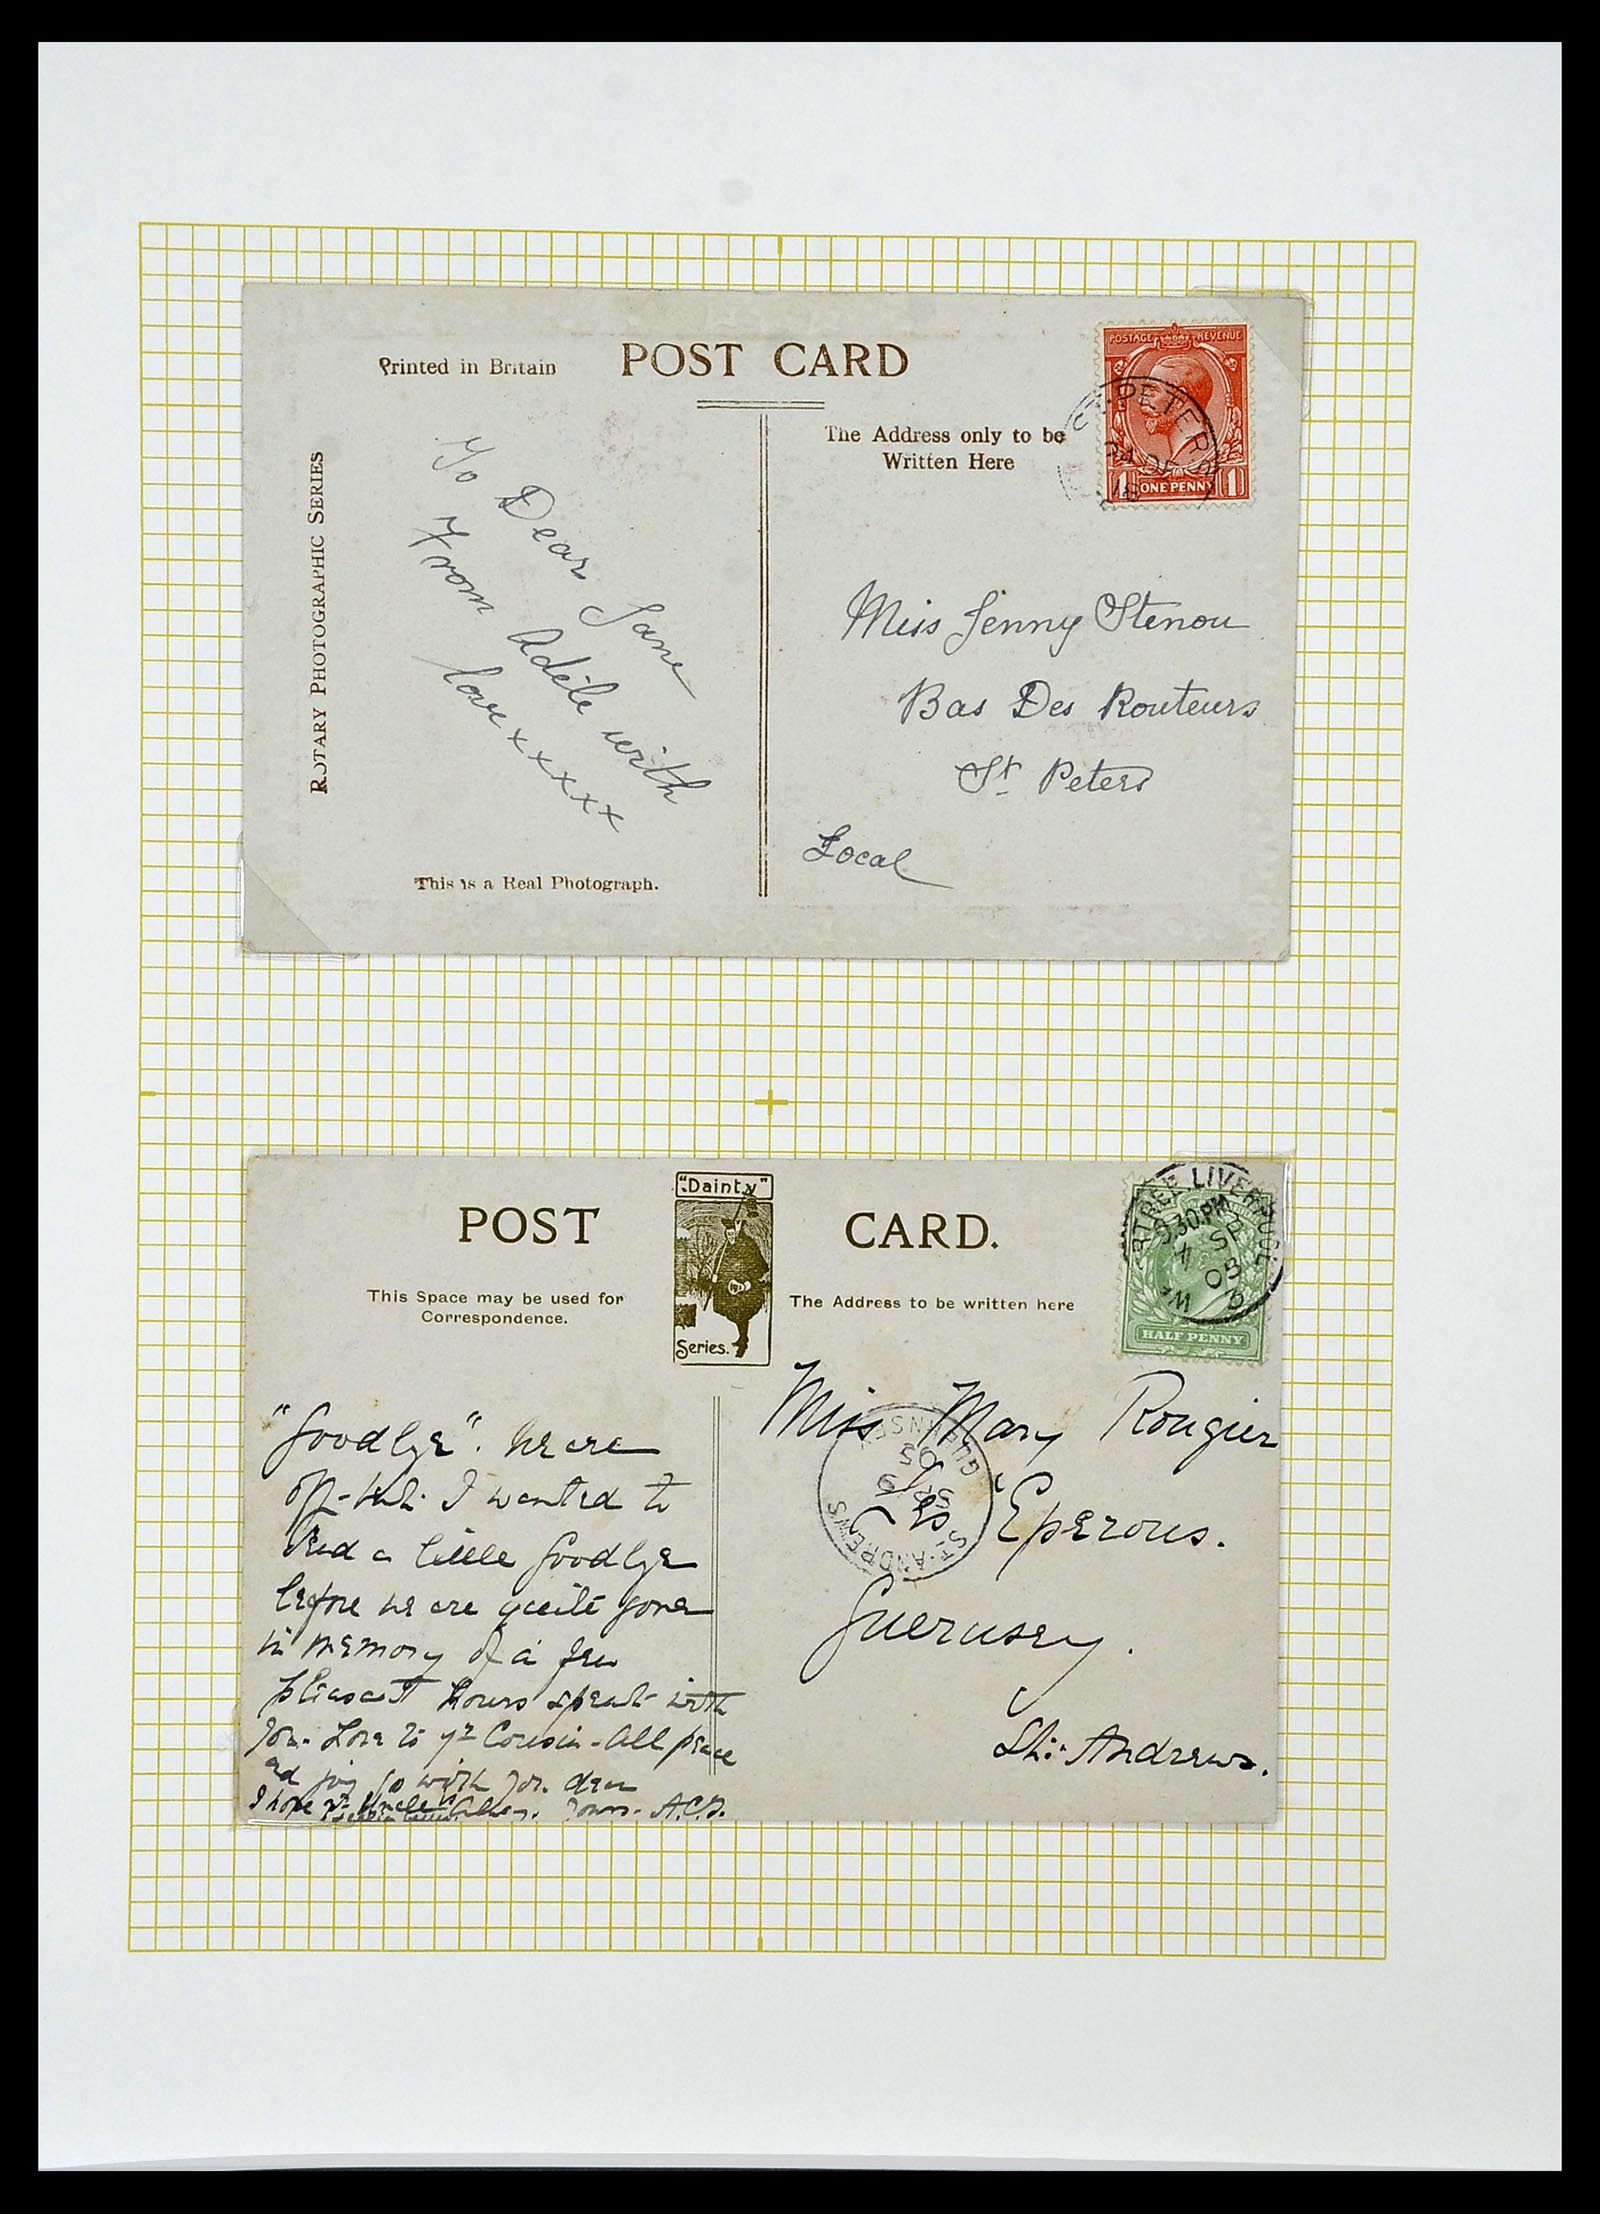 Printed in Britain
POST CARD
POSTAGE REVENUE
1 ONE PENNY 1
ST. PETERS
The Address only to be
Written Here
ROTARY PHOTOGRAPHIC SERIES
To Dear Jane
From Adèle with
love x x x x x x
Miss Jenny Stenou
Bas Des Routeurs
St Peters
Local
This is a Real Photograph.
POST
"Dainty"
Series.
CARD.
This Space may be used for
Correspondence.
The Address to be written here
LIVERPOOL
9.30.PM
4 SP
HALF PENNY
"Goodbye". We are
off- but. I wanted to
send a little Goodbye
before we are quite gone
in memory of a few
pleasant hours spent with
you. Love to yr Cousin - All peace
and joy go with you dear
I hope yr Uncle Yours. A.C.
Miss Mary Rougier
Les Eperons.
Guernsey.
St: Andrews.
ST. ANDREWS
SP 9
05
GUERNSEY